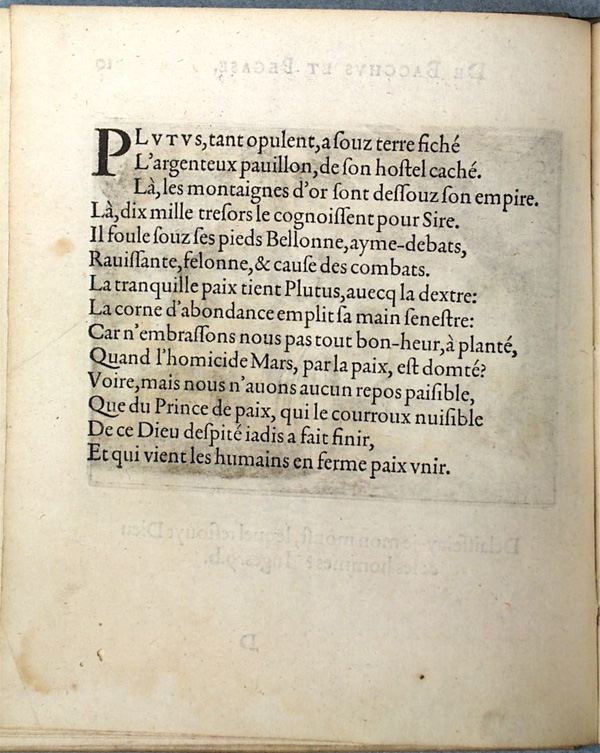 PLVTVS, tant opulent, a ſouz terre fiché
L'argenteux pauillon, de ſon hoſtel caché.
Là, les montaignes d'or ſont deſſouz ſon empire.
Là, dix mille treſors le cognoiſſent pour Sire.
Il foule ſouz ſes pieds Bellonne, ayme-debats,
Rauiſſante, felonne, & cauſe des combats.
La tranquille paix tient Plutus, auecq la dextre:
La corne d'abondance emplit ſa main ſeneſtre:
Car n'embraſſons nous pas tout bon-heur, à planté,
Quand l'homicide Mars, par la paix, eſt domté?
Voire, mais nous n'auons aucun repos paiſible,
Que du Prince de paix, qui le courroux nuiſible
De ce Dieu deſpité iadis a fait finir,
Et qui vient les humains en ferme paix vnir.